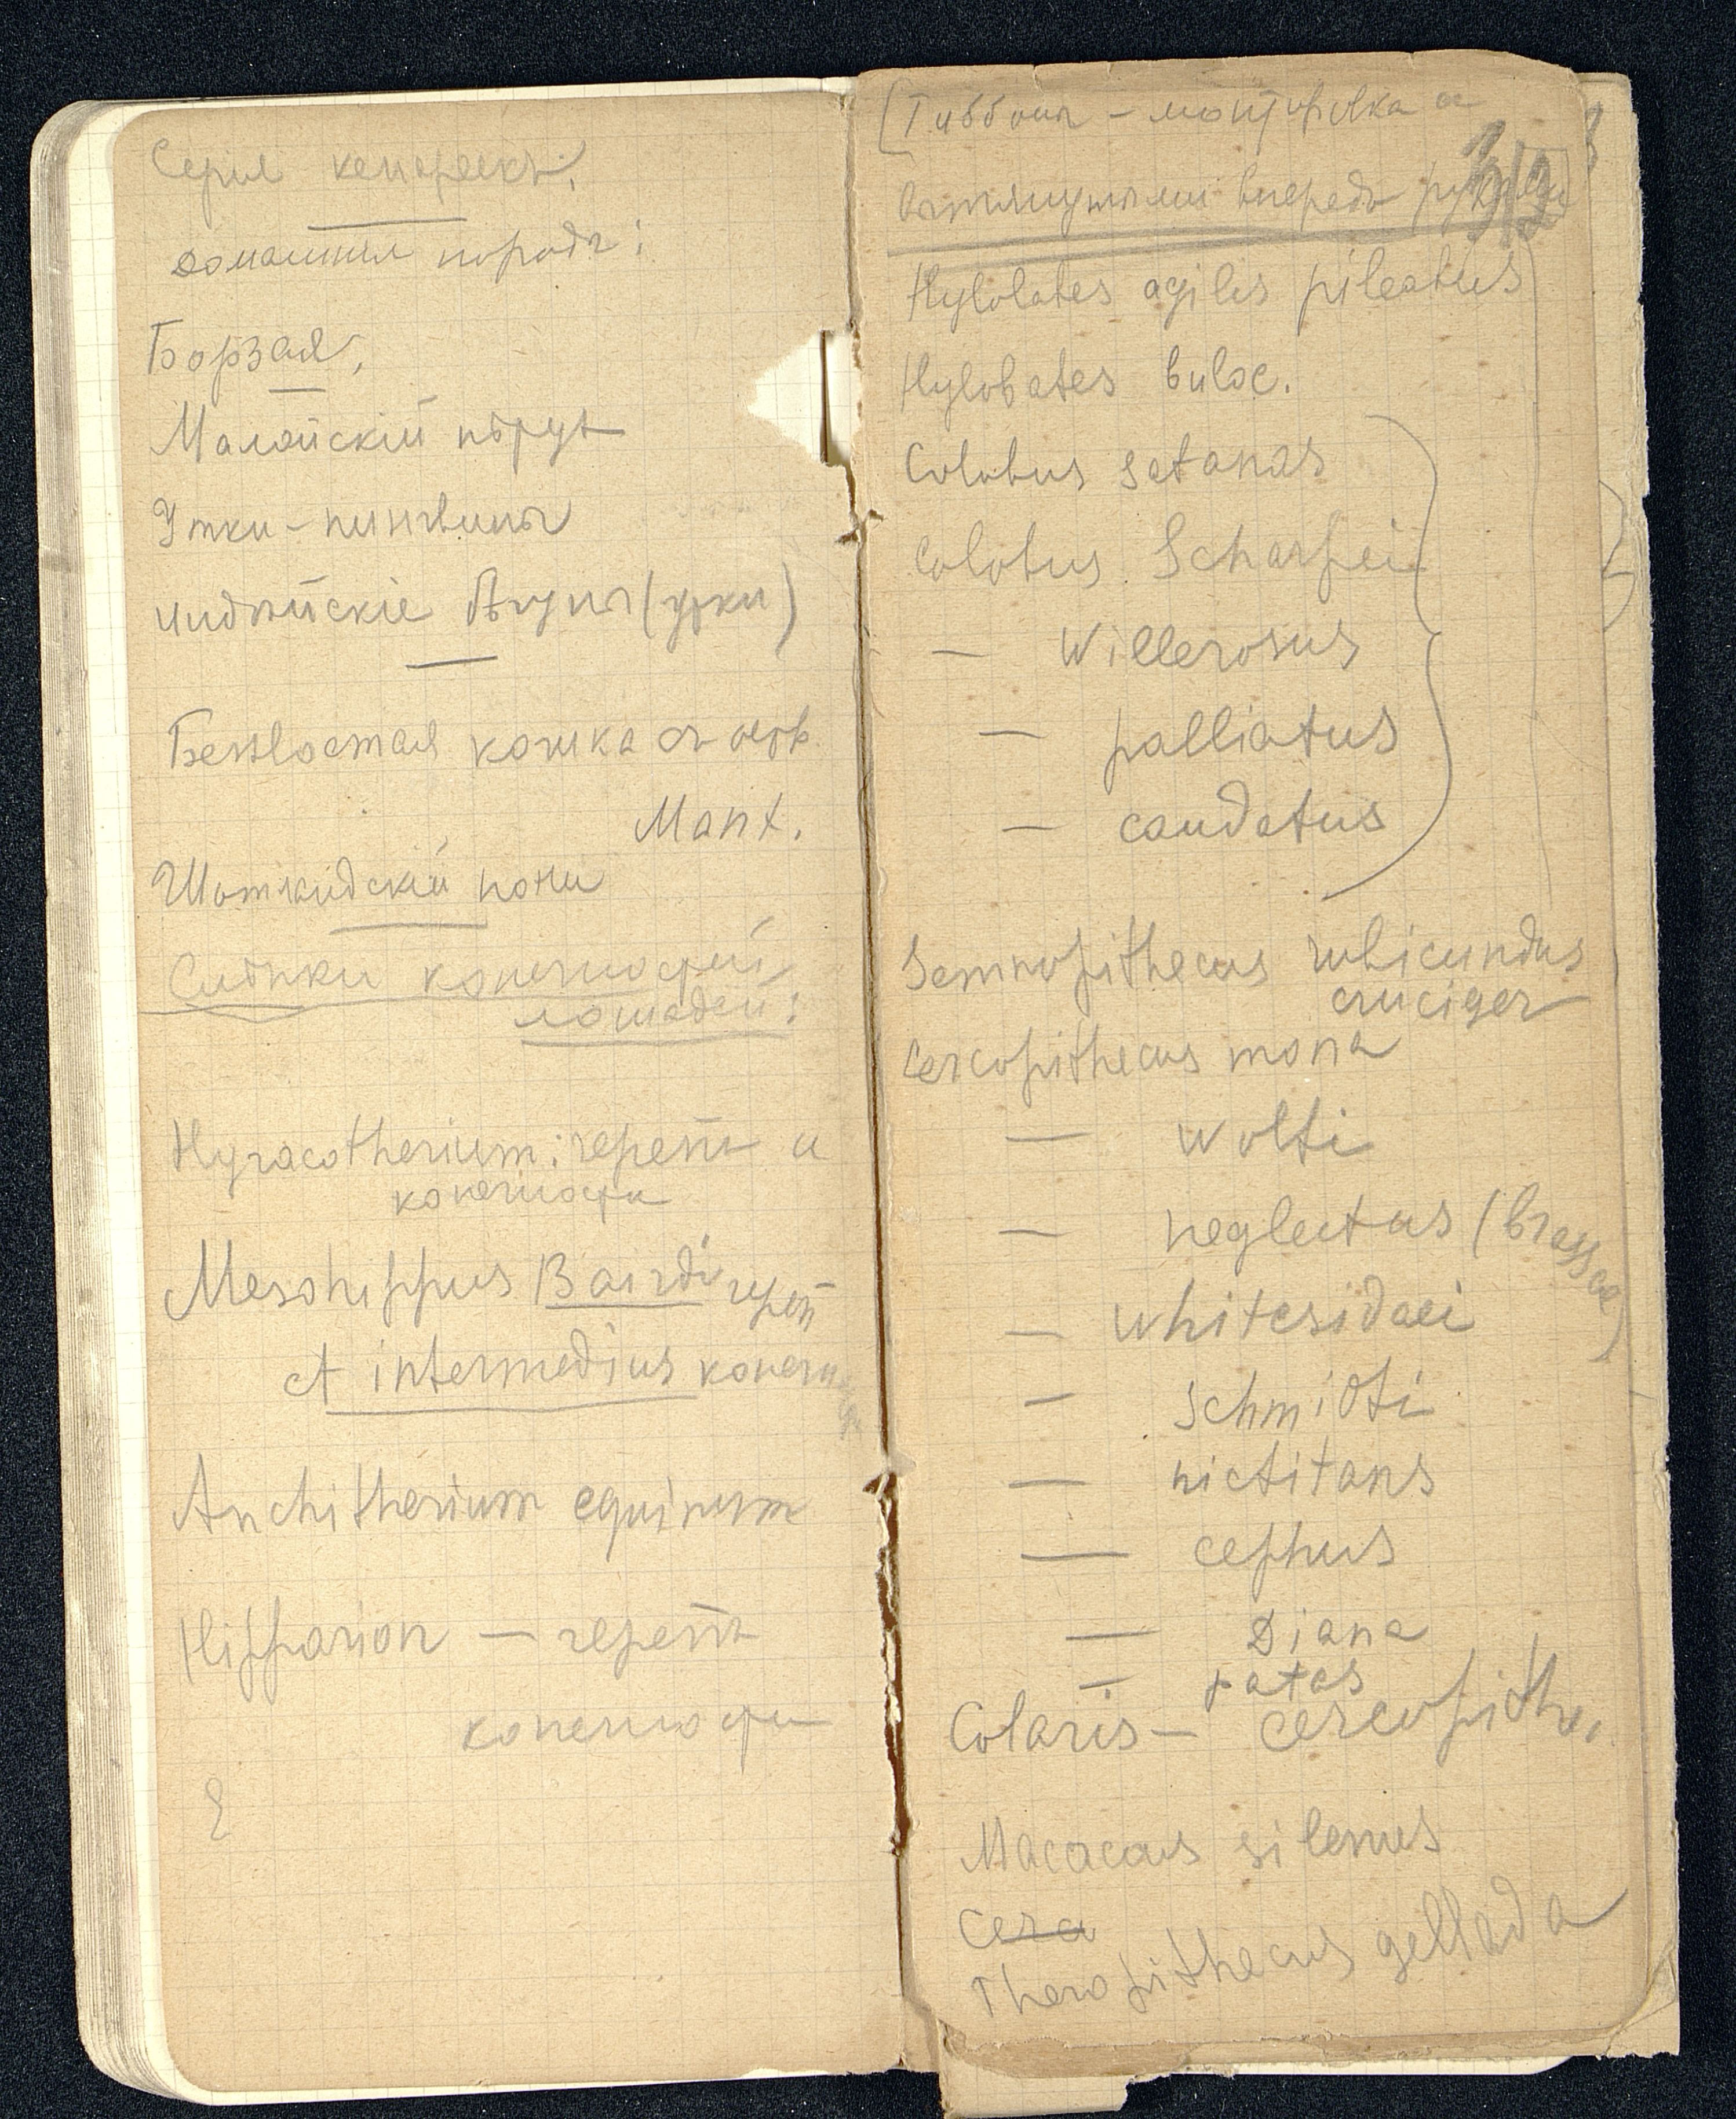 Серiя канареекъ,
домашнiя породы:
Борзая,
Малайскiй пѣтухъ
Утки-пингвины
индѣйскiе бѣгуны (утки)
Безхвостая кошка съ остр.
Манх.
Шотландскiй пони
Снимки конечностей
лошадей:
Hyracotherium: черепъ и
конечности
Mesohippus Bairdi череп
et intermedius конечн
Anchitherium equinum
Hipparion — черепъ
конечности
[Гиббоны – монтировка съ
вытянутыми впередъ руками]
Hylobates agilis pileatus
Hylobates buloc.
Colobus satanas
Colobus Scharpei
— Willerosus
— palliatus
— caudatus
Semnopithecus rubicundus
cruciger
Cercopithecus mona
— Wolfi
— neglectus (brassae)
— Whitesidaei
— Schmidti
— nictitans
— cephus
— Diana
— patas
Colaris — cercopithe.
Macacus silenus
Cerc
Theropithecus gellada